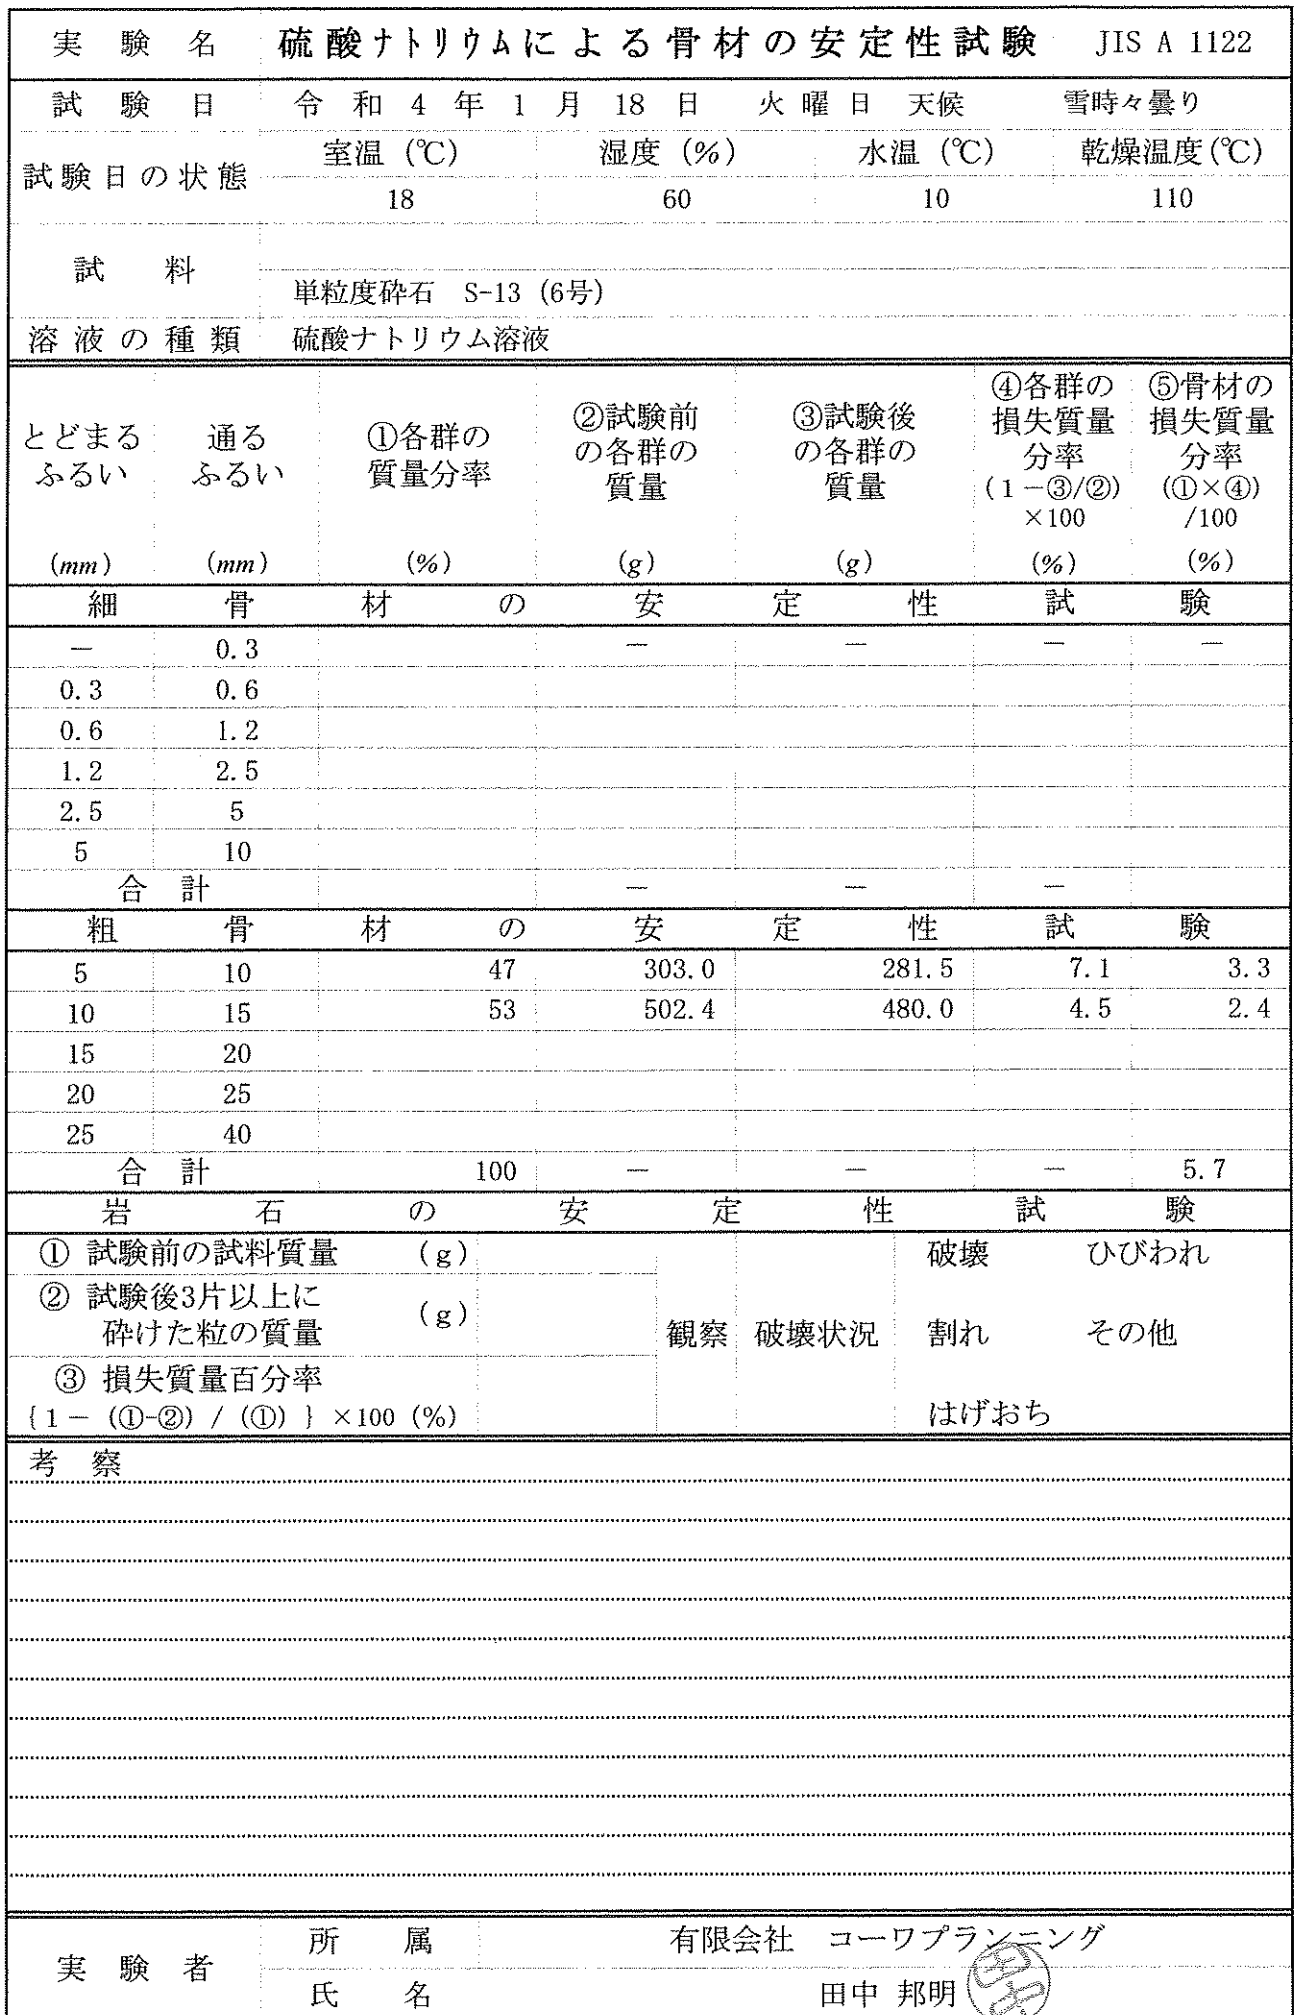 実験名 硫酸ナトリウムによる骨材の安定性試験 JIS A 1122
試験日 令和4年1月18日 火曜日 天候 雪時々曇り
試験日の状態 室温(℃) 湿度(%) 水温(℃) 乾燥温度(℃)
18 60 10 110
試料
単粒度砕石 S-13 (6号)
溶液の種類 硫酸ナトリウム溶液
とどまるふるい (mm)
通るふるい (mm)
①各群の質量分率 (%)
②試験前の各群の質量 (g)
③試験後の各群の質量 (g)
④各群の損失質量分率 (1-③/②)×100 (%)
⑤骨材の損失質量分率 (①×④)/100 (%)
細骨材の安定性試験
— 0.3 — — — —
0.3 0.6
0.6 1.2
1.2 2.5
2.5 5
5 10
合計 — — —
粗骨材の安定性試験
5 10 47 303.0 281.5 7.1 3.3
10 15 53 502.4 480.0 4.5 2.4
15 20
20 25
25 40
合計 100 — — — 5.7
岩石の安定性試験
① 試験前の試料質量 (g)
② 試験後3片以上に砕けた粒の質量 (g)
③ 損失質量百分率
{1- (①-②) / (①) } ×100 (%)
観察 破壊状況
破壊 ひびわれ
割れ その他
はげおち
考察
実験者 所属 有限会社 コーワプランニング
氏名 田中 邦明